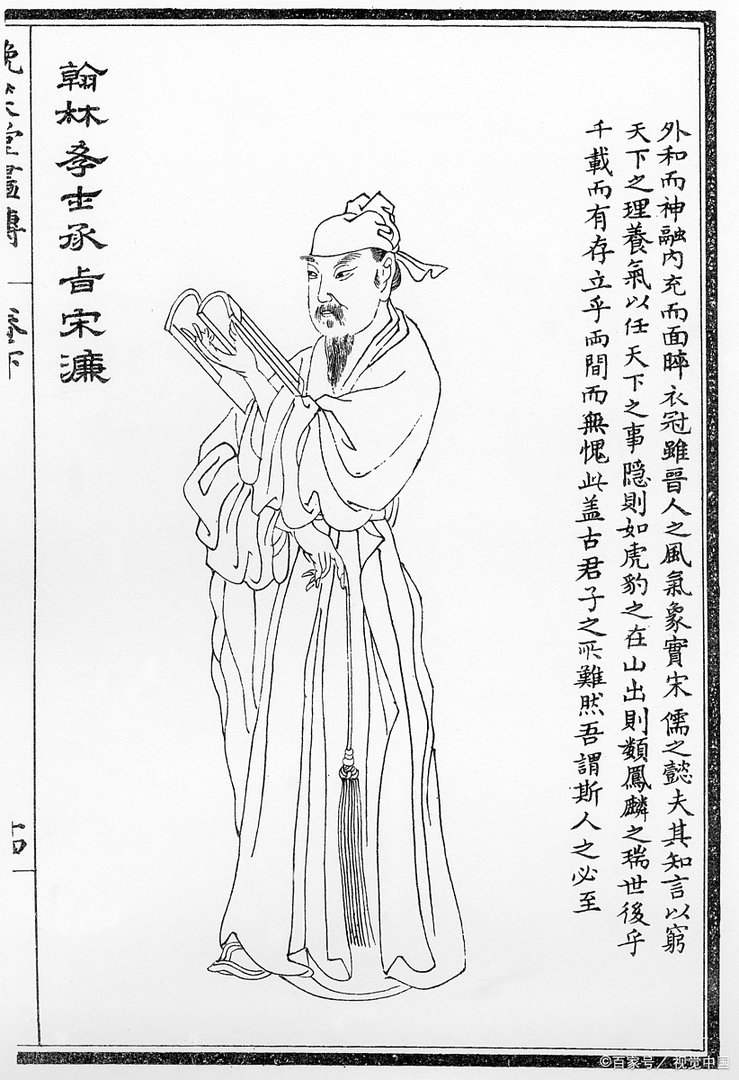 外和而神融內充而面睟衣冠雖晉人之風氣象實宋儒之懿夫其知言以窮
天下之理養氣以任天下之事隱則如虎豹之在山出則類鳳麟之瑞世後乎
千載而有存立乎兩間而無愧此蓋古君子之所難然吾謂斯人之必至
翰林學士承旨宋濂
晚笑堂畫傳
卷下
©百家号/视觉中国